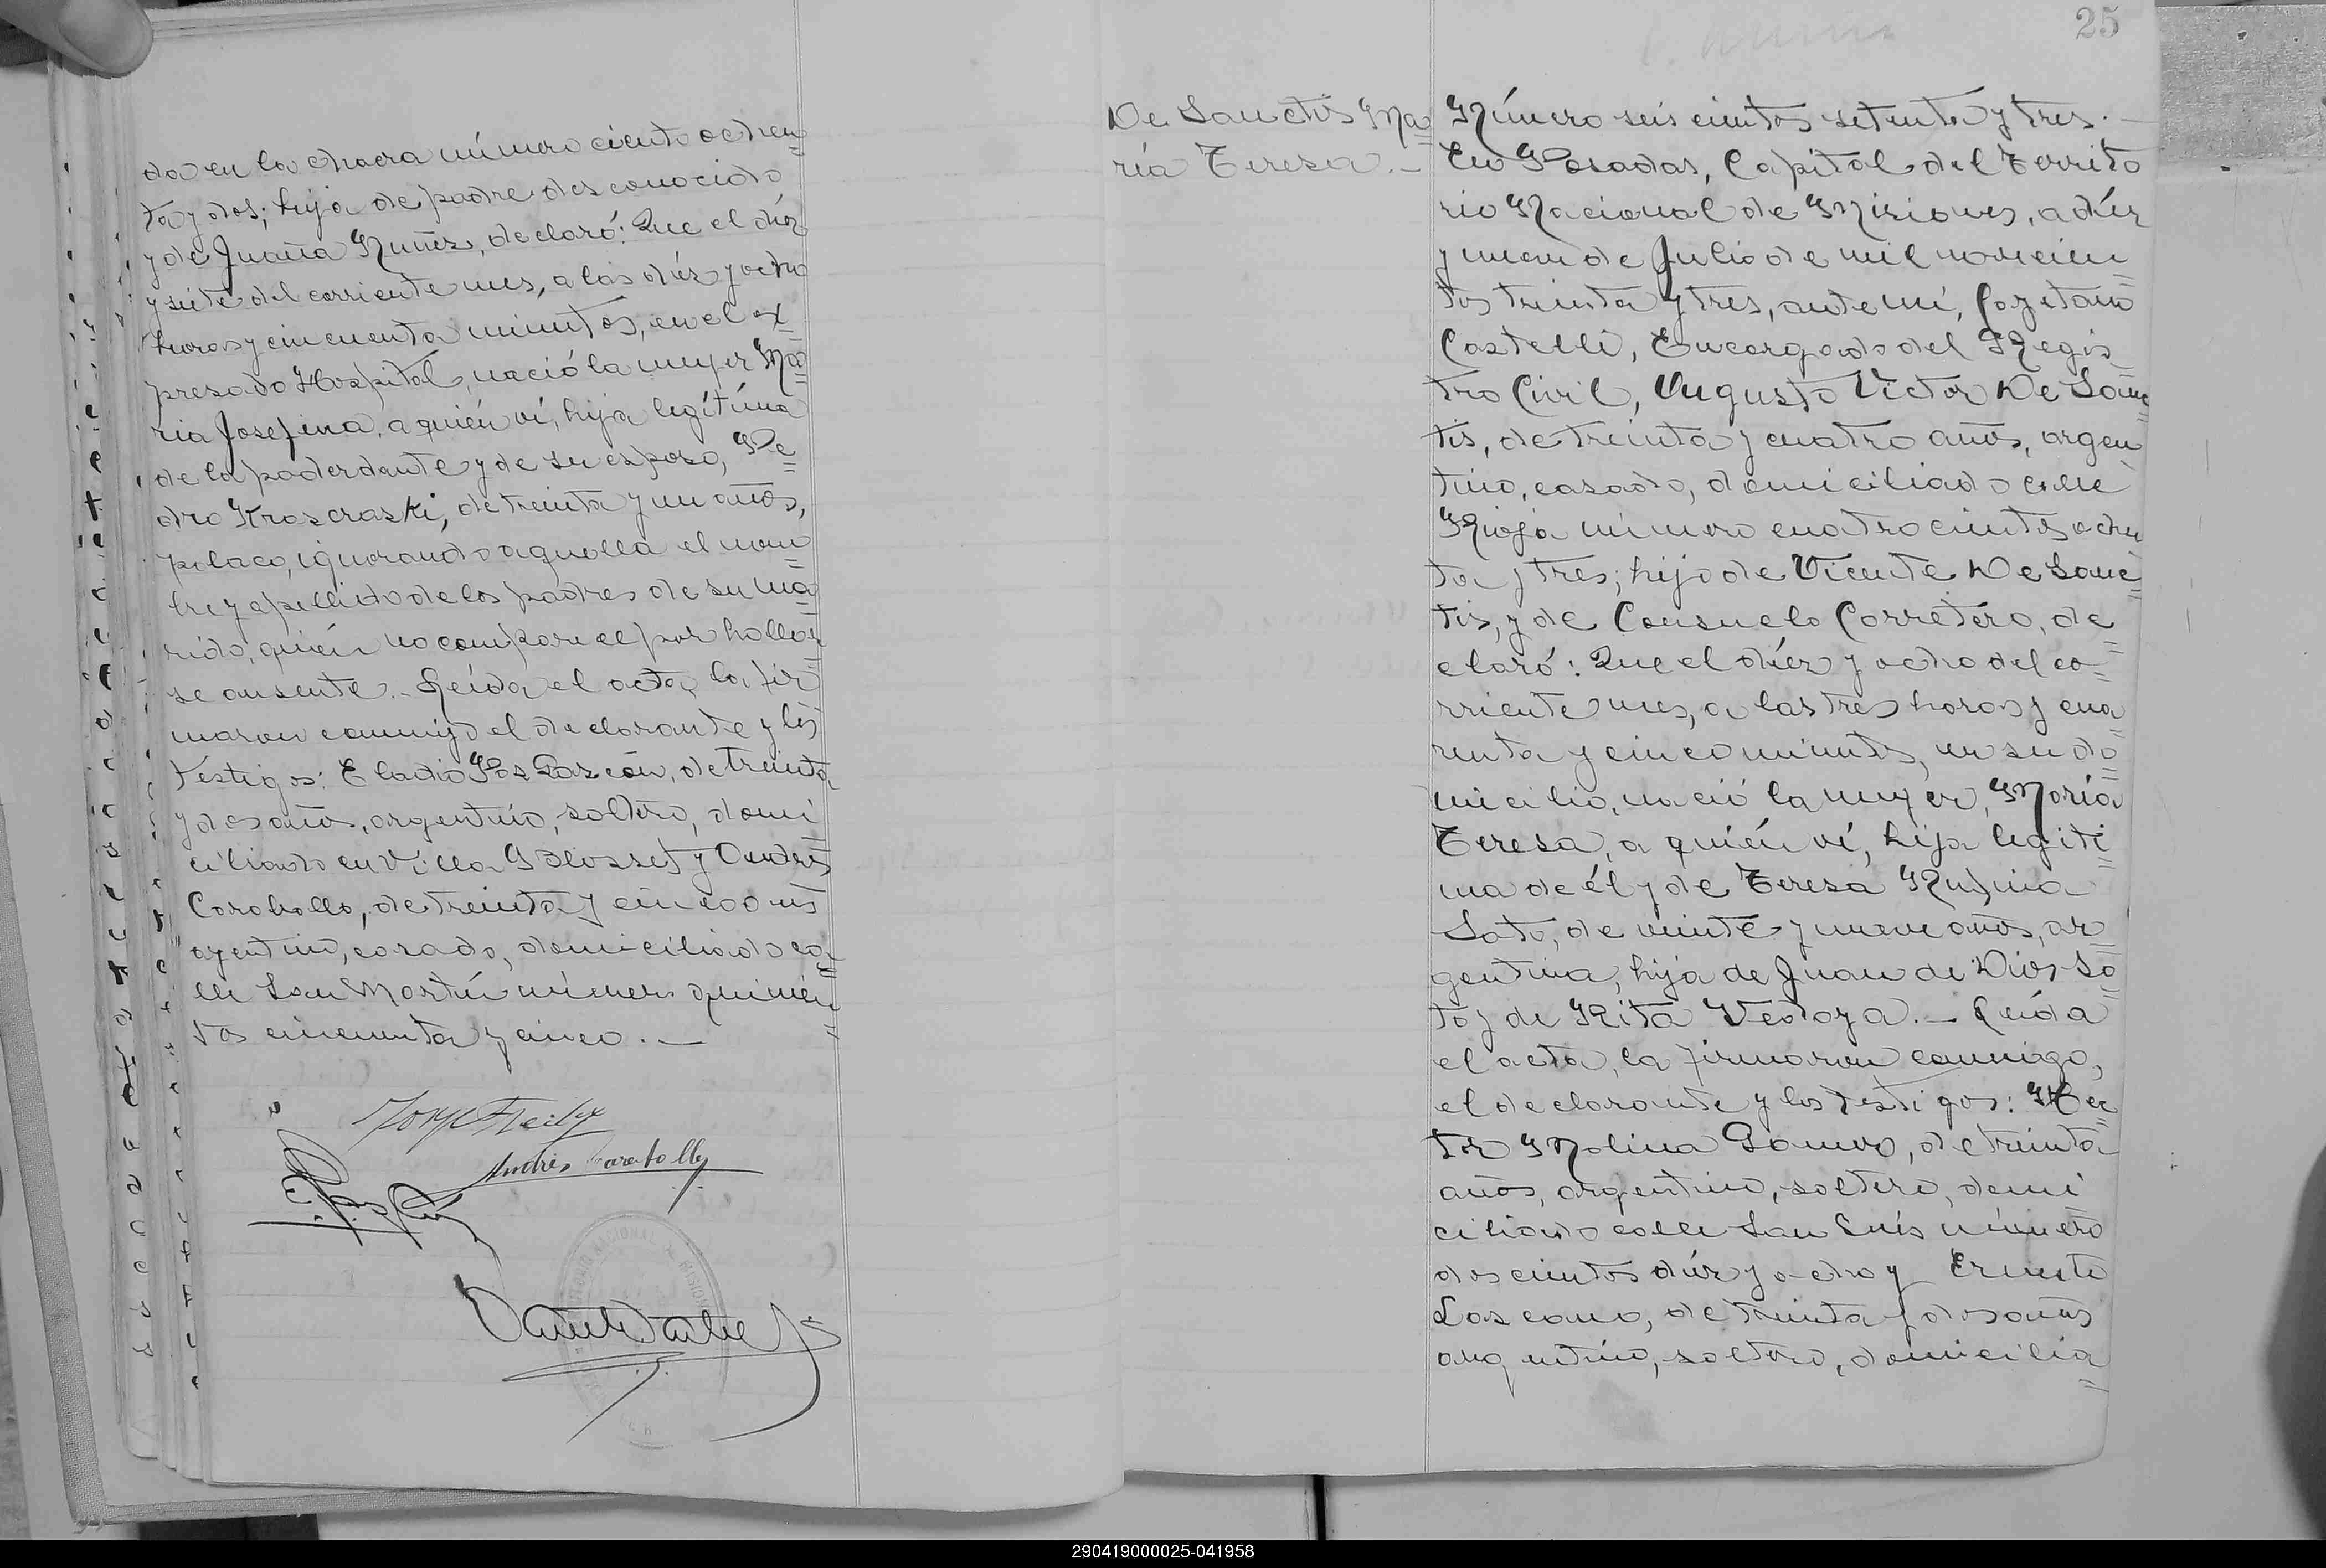 da en la chacra número ciento ochen
ta y dos; hija de padre desconocido
y de Juana Nuñez, declaró: Que el diez
y siete del corriente mes, a las diez y ocho
horas y cincuenta minutos, en el ex
presado Hospital, nació la mujer Ma
ria Josefina, a quién ví, hija legítima
de la poderdante y de su esposo, Pe
dro Kroscraski, de treinta y un años,
polaco, ignorando aquella el nom
bre y apellido de los padres de su ma
rido, quién no comparece por hallar
se ausente.- Leída el acta, la fir
maron conmigo el declarante y los
testigos: Eladio Paz, de treinta
y dos años, argentino, soltero, domi
ciliado en Villa Blosset y Andres
Caroballo, de treinta y cinco años
argentino, casado, domiciliado ca
lle San Martín número quinien
tos cincuenta y cinco.-
Andrés Caraballo
25
De Sanctis Ma
ría Teresa.-
Número seiscientos setenta y tres.-
En Posadas, Capital del Territo
rio Nacional de Misiones, a diez
y nueve de Julio de mil novecien
tos treinta y tres, ante mí, Cayetano
Castelli, Encargado del Regis
tro Civil, Augusto Victor De Sanc
tis, de treinta y cuatro años, argen
tino, casado, domiciliado calle
Rioja número cuatrocientos ochen
ta y tres; hijo de Vicente De Sanc
tis, y de Consuelo Corretero, de
claró: Que el diez y ocho del co
rriente mes, a las tres horas y cua
renta y cinco minutos, en su do
micilio, nació la mujer, María
Teresa, a quién ví, hija legiti
ma de él y de Teresa Rufina
Soto, de veinte y nueve años, ar
gentina, hija de Juan de Dios So
to y de Rita Vedoya.- Leída
el acta, la firmaron conmigo,
el declarante y los testigos: Hec
tor Molina Gomez, de treinta
años, argentino, soltero, domi
ciliado calle San Luis número
doscientos diez y ocho y Ernesto
Lascano, de treinta y dos años
argentino, soltero, domicilia
290419000025-041958